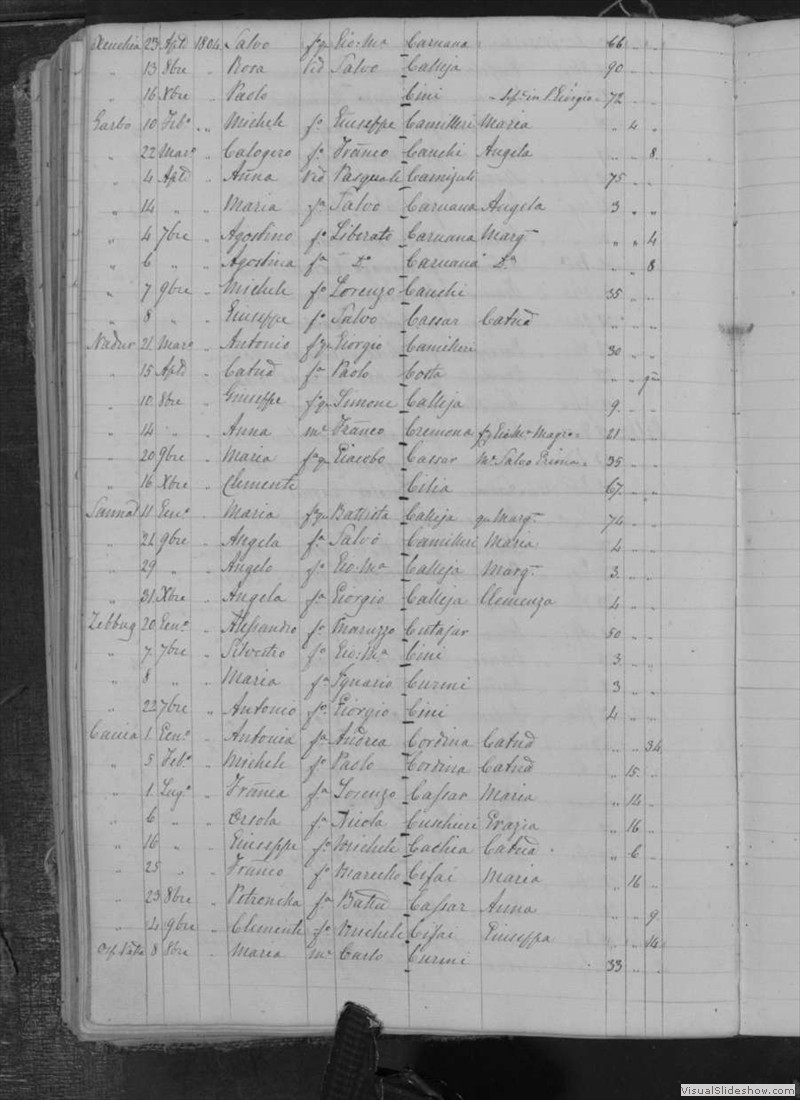 Xeuchia 23 Aple 1804 Salvo fqm Gio: Ma Caruana 66 " "
" 13 8bre " Rosa Vid Salvo Calleja 90 " "
" 16 Xbre " Paolo Cini - Sep. in S. Giorgio - 72 " "
Garbo 10 Febo " Michele fo Giuseppe Camilleri Maria " 4 "
" 22 Maro " Calogero fo Franco Cauchi Angela " " 8
" 4 Aple " Anna Vid Pasquale Camizuli 75 " "
" 14 " " Maria fa Salvo Caruana Angela 3 " "
" 4 7bre " Agostino fo Liberato Caruana Marga " " 4
" 6 " " Agostina fa Do Caruana Da " " 8
" 7 9bre " Michele fo Lorenzo Cauchi 35 " "
" 8 " " Giuseppe fo Salvo Cassar Catna " " "
Nadur 21 Maro " Antonio fqm Giorgio Camilleri 30 " "
" 15 Aple " Catna fa Paolo Costa " "
" 10 8bre " Giuseppe fqm Simone Calleja 9 " "
" 14 " " Anna me Franco Cremona 21 " "
" 20 9bre " Maria fqm Giacobo Cassar Me Salvo 35 " "
" 16 Xbre " Clemente Cilia 67 " "
Sannat 11 Geno " Maria fqm Battista Calleja qm Marga 74 " "
" 21 9bre " Angela fa Salvo Camilleri Maria 4 " "
" 29 " " Angelo fo Gio: Ma Calleja Marga 3 " "
" 31 Xbre " Angela fa Giorgio Calleja Clemenza 4 " "
Zebbug 20 Geno " Alessandro fo Maruzzo Cutajar 50 " "
" 7 7bre " Silvestro fo Gio: Ma Cini 3 " "
" 8 " " Maria fa Ignazio Curmi 3 " "
" 22 7bre " Antonio fo Giorgio Cini 4 " "
Caccia 1 Geno " Antonia fa Andrea Cordina Catna " " 34
" 5 Febo " Michele fo Paolo Cordina Catna " 15 "
" 1 Lugo " Franca fa Lorenzo Cassar Maria " 14 "
" 6 " " Orsola fa Nicola Cuschieri Grazia " 16 "
" 16 " " Giuseppe fo Michele Cachia Catna " 6 "
" 25 " " Franco fo Marcello Cifai Maria " 16 "
" 23 8bre " Petronilla fa Batta Cassar Anna " " 9
" 4 9bre " Clemente fo Michele Cifai Giuseppa " " 14
8 8bre " Maria me Carlo Curmi 33 " "
VisualSlideshow.com